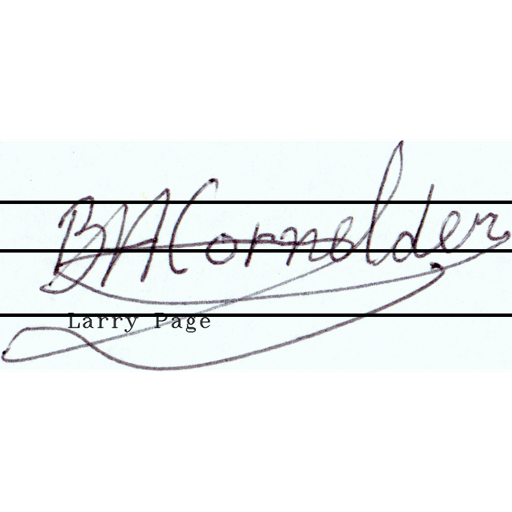 BACornelder
Larry Page